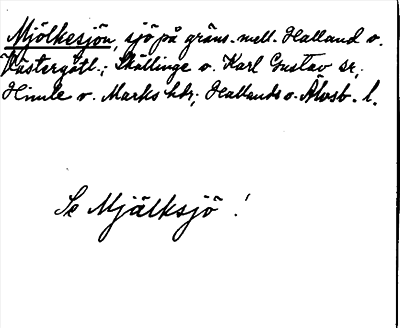 Mjölkesjön, sjö på gräns. mell. Halland o.
Västergötl.; Skällinge o. Karl Gustav sr;
Himle o. Marks hdr; Hallands o. Älvsb. l.
Se Mjälksjö!